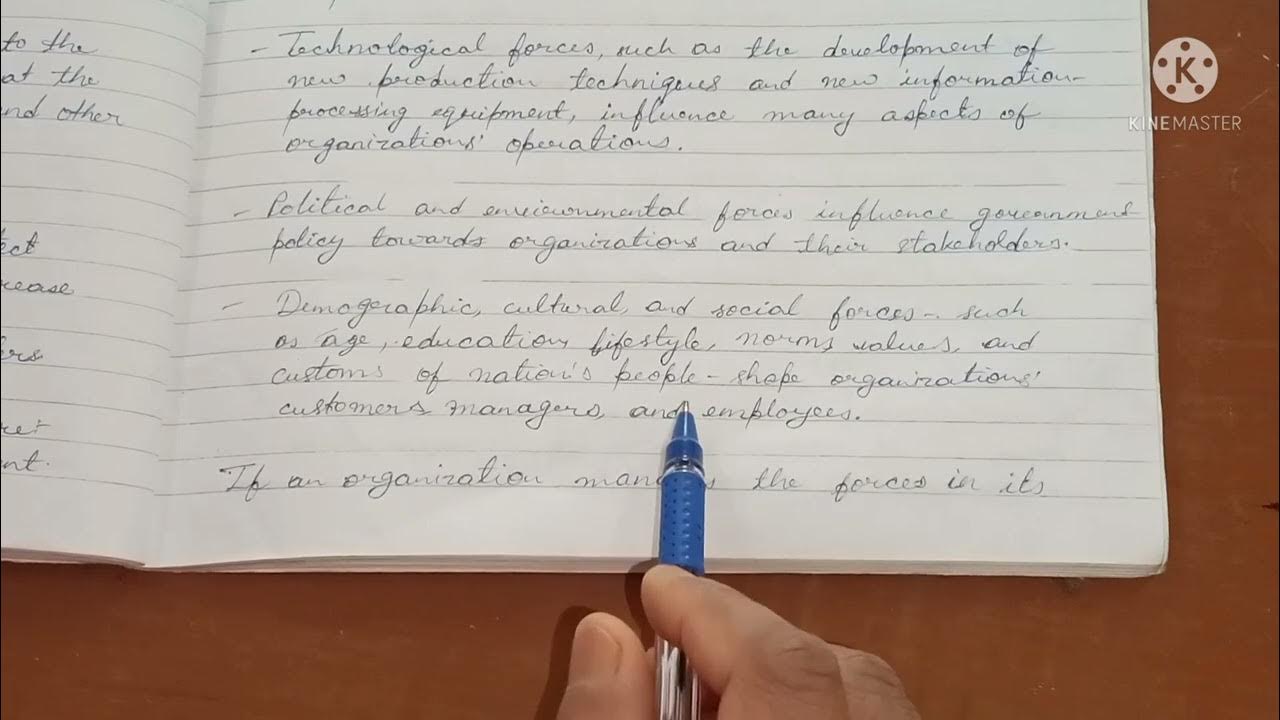 to the
at the
and other
ect
rease
ers
nt.
- Technological forces, such as the development of
new production techniques and new information-
processing equipment, influence many aspects of
organizations' operations.
- Political and environmental forces influence government
policy towards organizations and their stakeholders.
- Demographic, cultural, and social forces - such
as age, education, lifestyle, norms, values, and
customs of nation's people - shape organizations'
customers, managers, and employees.
If an organization the forces in its
K
KINEMASTER